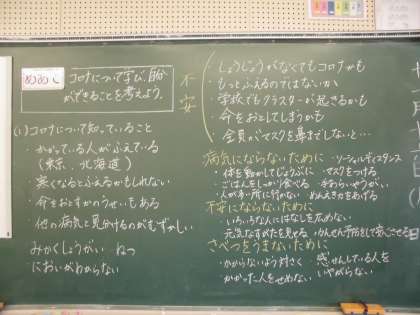 めあて
コロナについて学び、自分
ができることを考えよう。
(1) コロナについて知っていること
・かかっている人がふえている
(東京、北海道)
・寒くなるとふえるかもしれない
・命をおとすかのうせいもある
・他の病気と見分けるのがむずかしい
みかくしょうがい ねつ
においがわからない
不安
・しょうじょうがなくてもコロナかも
・もっとふえるのではないか
・学校でもクラスターが起きるかも
・命をおとしてしまうかも
・全員がマスクを鼻までしないと…
病気にならないために ・ソーシャルディスタンス
・体を動かしてじょうぶに ・マスクをつける
・ごはんをしっかり食べる ・手あらい、うがい
・人が多い所に行かない ・めんえきをあげる
不安にならないために
・いろいろな人にはなしを広めない
元気なすがたを見せる ・かんせん予防をして安心させる
さべつをうまないために
・かからないよう対さく ・感せんしている人を
・かかった人をせめない いやがらない
日